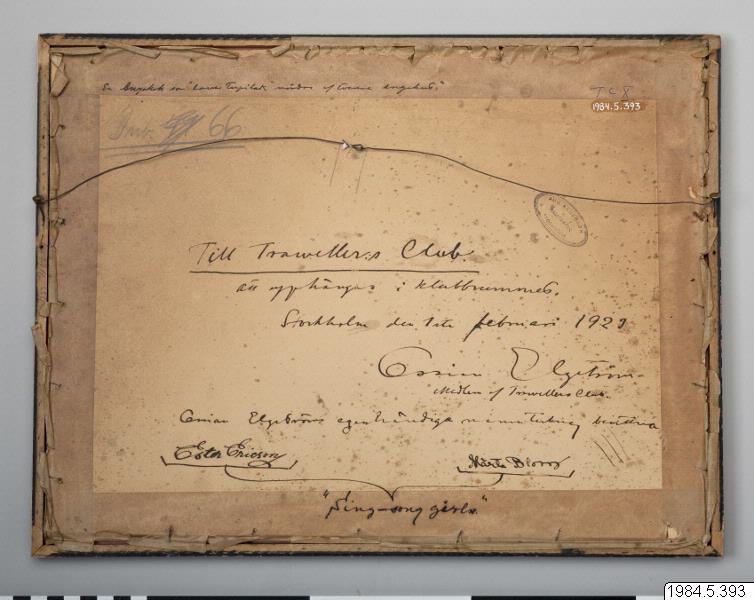 TCX
1984.5.393
Inv. 66
Till Trawellers Club
att upphängas i klubbrummet.
Stockholm den 1ste februari 1929
Ossian Elgström
Medlem af Travellers Club.
Ossian Elgströms egenhändiga namnteckning bevittna
Ester Ericson Märta
"Sing-song girls"
1984.5.393